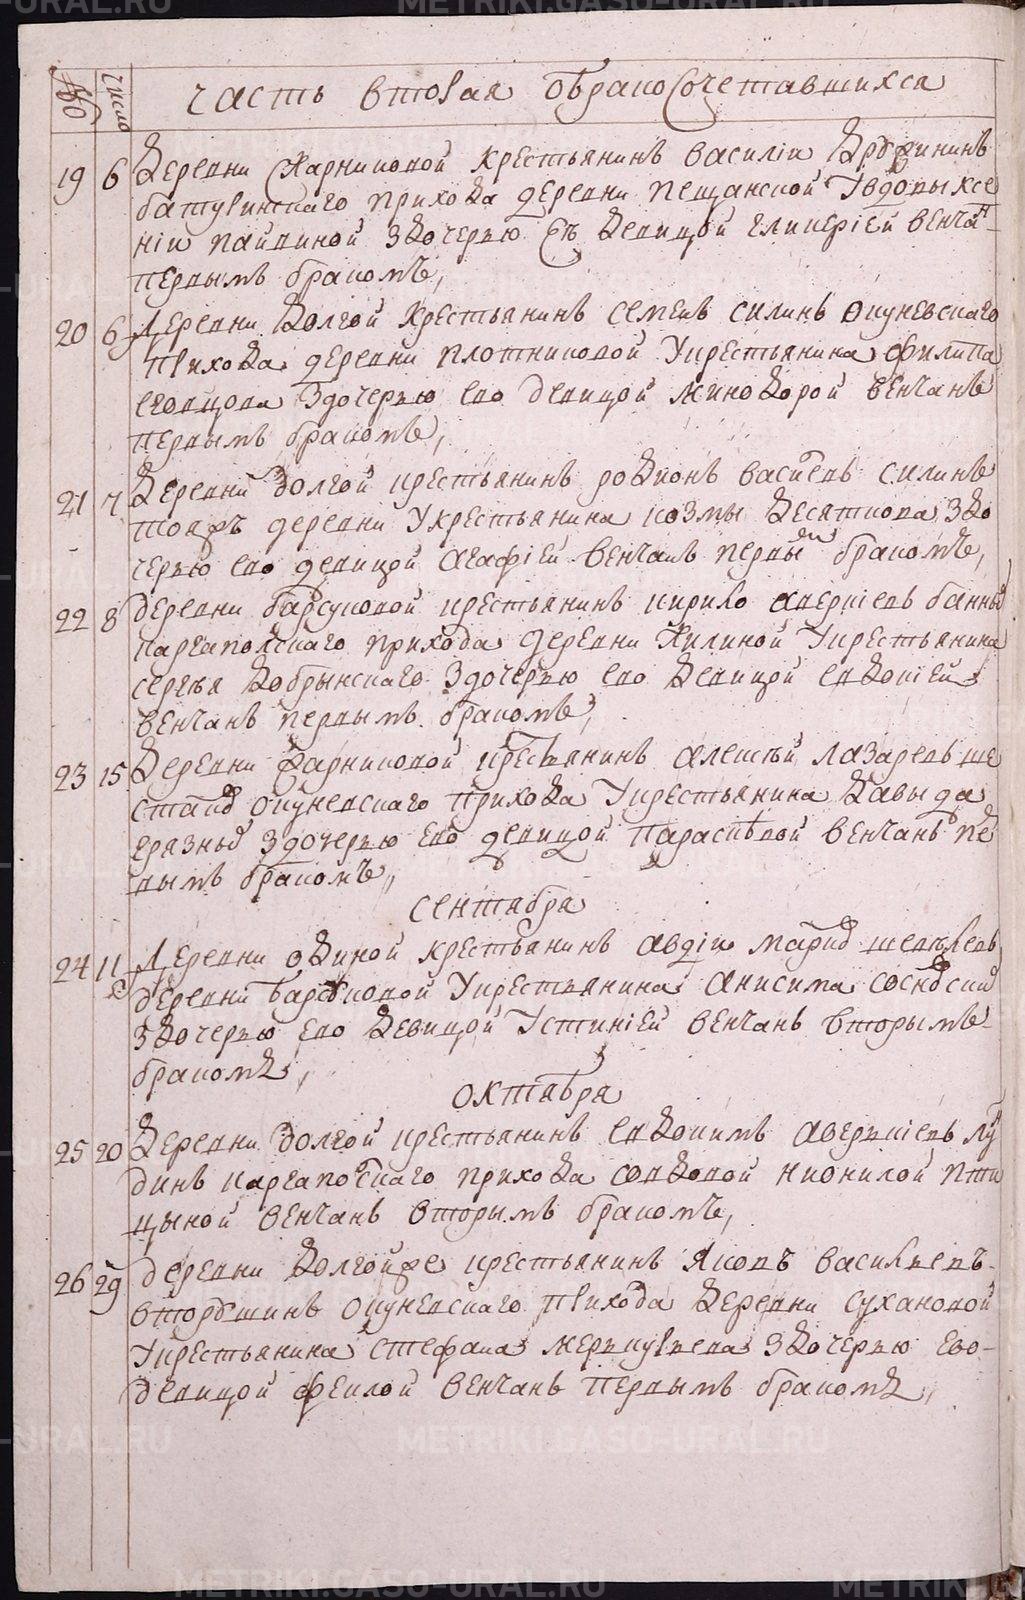 METRIKI.GASO-URAL.RU
число часть вторая обракосочетавшихся
19 6 деревни крестьянинъ василіи
батуринскаго прихода деревни пещанской увдовы ксе
ніи пайвиной здочерью съ девицой гликеріей венчанъ
первымъ бракомъ,
20 6 деревни долгой крестьянинъ семенъ силинъ окуневскаго
прихода деревни плотниковой укрестьянина филипа
здочерью ево девицой минодорой венчанъ
первымъ бракомъ,
21 7 деревни долгой крестьянинъ родионъ василевъ силинъ
тояжъ деревни укрестьянина козмы десяткова здо
черью ево девицой агафіей венчанъ первымъ бракомъ,
22 8 деревни барсуковой крестьянинъ кирило аверкіевъ
каргапольскаго прихода деревни жилиной укрестьянина
сергея добрынскаго здочерью ево девицой евдокіей
венчанъ первымъ бракомъ,
23 15 деревни крестьянинъ алексѣй лазаревъ ше
стаковъ окуневскаго прихода укрестьянина давыда
грязныхъ здочерью ево девицой параскѣвой венчанъ пер
вымъ бракомъ,
сентября
24 11 деревни одиной крестьянинъ авдіи
деревни барсуковой укрестьянина анисима
здочерью ево девицой устиніей венчанъ вторымъ
бракомъ,
октября
25 20 деревни долгой крестьянинъ евдокимъ аверькіевъ лу
динъ каргапольскаго прихода совдовой нионилой пти
цыной венчанъ вторымъ бракомъ,
26 29 деревни долгойже крестьянинъ яковъ васильевъ
вторушинъ окуневскаго прихода деревни сухановой
укрестьянина стефана меркурьева здочерью ево
девицой феклой венчанъ первымъ бракомъ,
METRIKI.GASO-URAL.RU